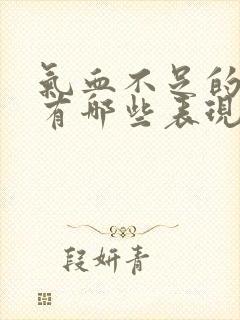 氣血不足的
有哪些表現
段妍青